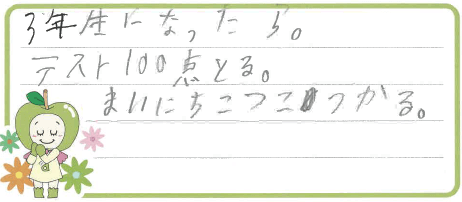 3年生になったら。
テスト100点とる。
まいにちこつこつがる。